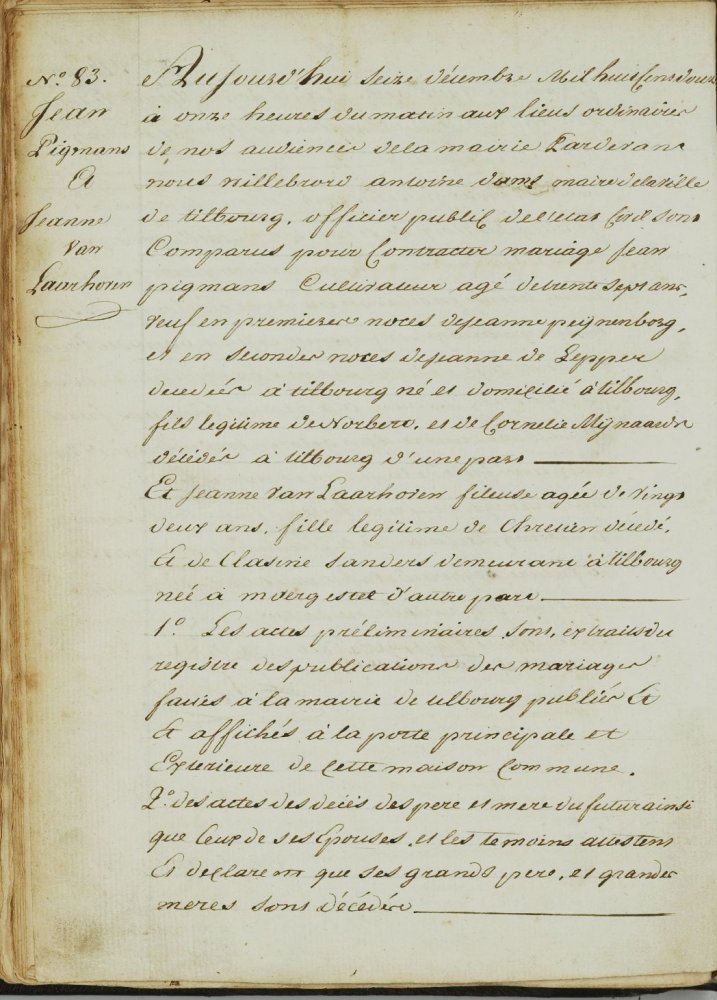 N.o 83.
Jean
Pigmans
Et
Jeanne
Van
Laarhoven
Aujourd'hui seize décembre Mil huit Cens douze
à onze heures du matin aux lieus ordinaires
de nos audiences de la mairie Pardevant
nous Willebrord antoine Dams maire de la ville
de tilbourg, officier public de l'état Civil sont
Comparus pour Contracter mariage Jean
pigmans Cultivateur agé de trente sept ans,
veuf en premieres noces de Jeanne peignenborg,
et en secondes noces de Jeanne de Lepper
decedées à tilbourg né et domicilié à tilbourg,
fils legitime de Norbert, et de Cornelie Mijnaards
décédés à tilbourg d'une part
Et Jeanne Van Laarhoven fileuse agée de vingt
deux ans, fille legitime de Chretien décedé,
Et de Clasine Sanders demeurant à tilbourg
née à moergestel d'autre part
1.o Les actes préliminaires sont, extraits du
registre des publications des mariages
faites à la mairie de tilbourg publiés Et
Et affichés à la porte principale et
Exterieure de Cette maison Commune.
2.o des actes des décès des pere et mere du futur ainsi
que Ceux de ses Epouses, et les temoins attestent
Et declarent que ses grands pere, et grandes
meres sont décédés